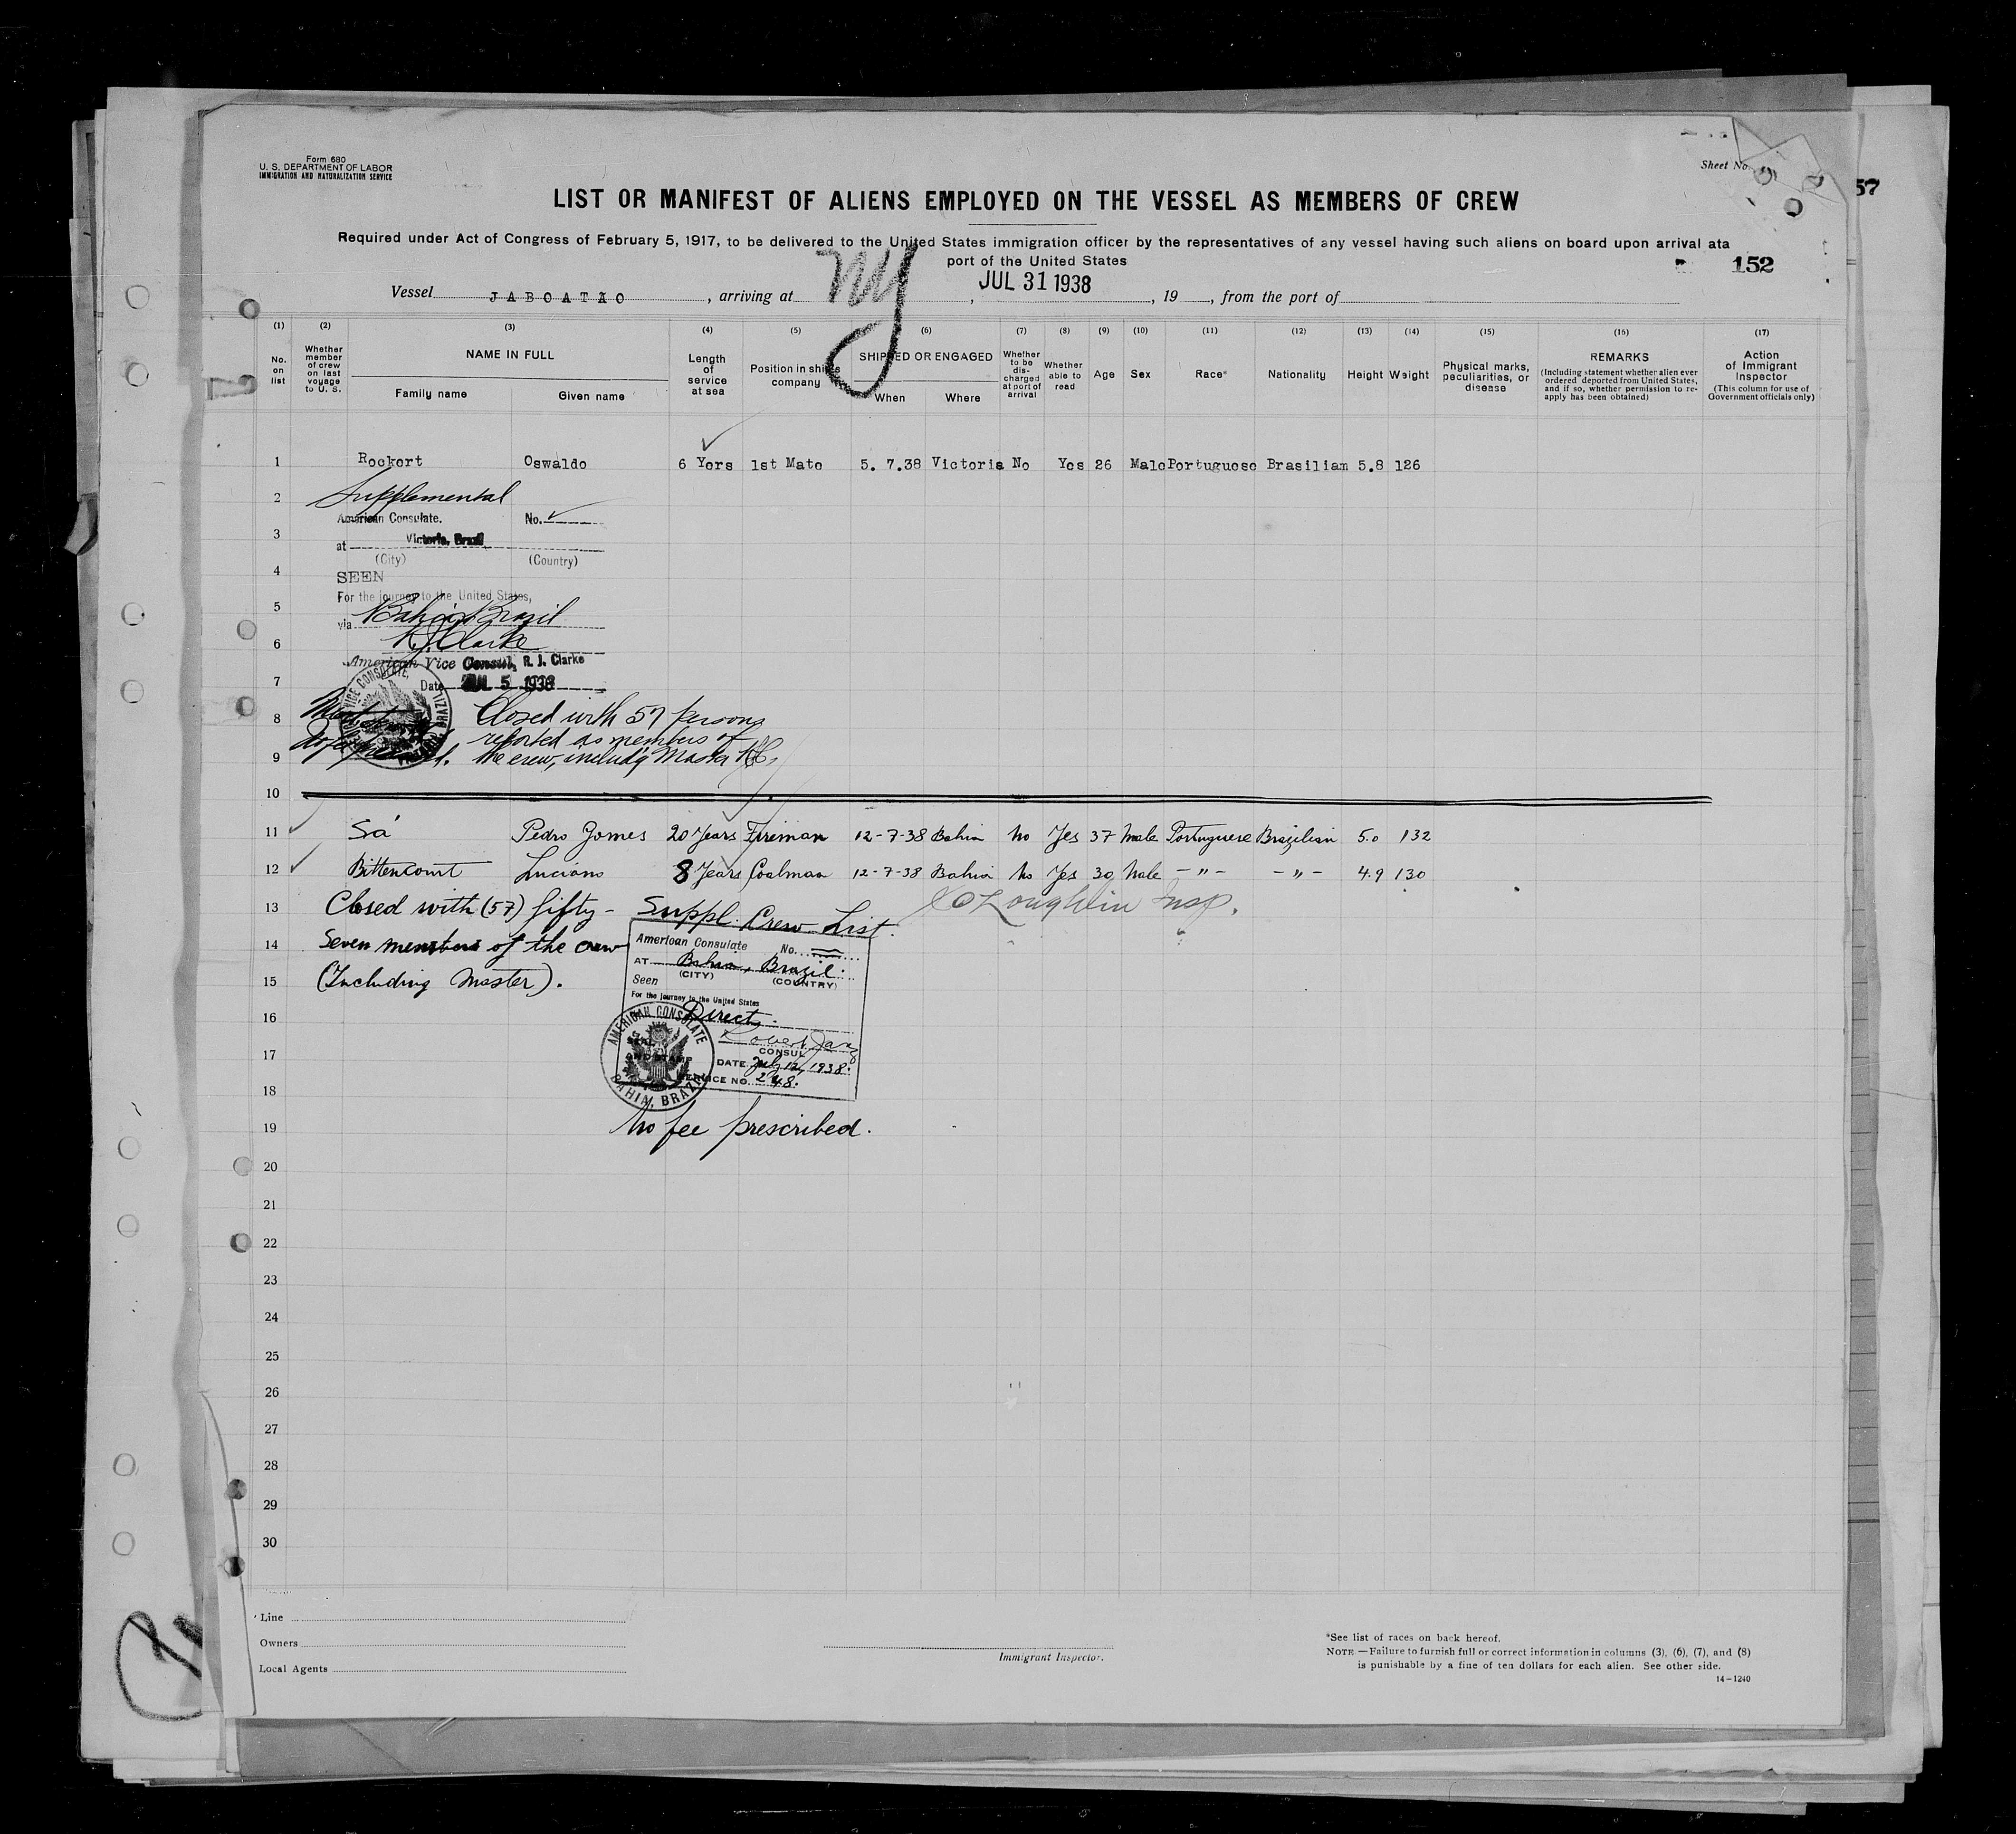 Form 680
U. S. DEPARTMENT OF LABOR
IMMIGRATION AND NATURALIZATION SERVICE
Sheet No.
LIST OR MANIFEST OF ALIENS EMPLOYED ON THE VESSEL AS MEMBERS OF CREW
57
Required under Act of Congress of February 5, 1917, to be delivered to the United States immigration officer by the representatives of any vessel having such aliens on board upon arrival at a
port of the United States
152
Vessel JABOATÃO, arriving at NY, JUL 31 1938, 19, from the port of
(1) (2) (3) (4) (5) (6) (7) (8) (9) (10) (11) (12) (13) (14) (15) (16) (17)
No. on list Whether member of crew on last voyage to U. S. NAME IN FULL Family name Given name Length of service at sea Position in ship's company SHIPPED OR ENGAGED When Where Whether to be discharged at port of arrival Whether able to read Age Sex Race* Nationality Height Weight Physical marks, peculiarities, or disease REMARKS (Including statement whether alien ever ordered deported from United States, and if so, whether permission to reapply has been obtained) Action of Immigrant Inspector (This column for use of Government officials only)
1 Rockert Oswaldo 6 Yers 1st Mate 5. 7.38 Victoria No Yes 26 Male Portuguese Brasiliam 5.8 126
2 Supplemental
American Consulate. No.
3 at Victoria, Brazil
(City) (Country)
4 SEEN
For the journey to the United States,
5 via Bahia Brazil
6 R. J. Clarke
American Vice Consul, R. J. Clarke
7 Date JUL 5 1938
8 Closed with 57 persons
reported as members of
9 the crew, includ'g Master
10
11 Sá Pedro Gomes 20 Years Fireman 12-7-38 Bahia No Yes 37 Male Portuguese Brazilian 5.0 132
12 Bittencourt Luciano 8 Years Coalman 12-7-38 Bahia No Yes 30 Male - " - - " - 4.9 130
13 Closed with (57) fifty - Suppl. Crew List.
O'Loughlin Insp.
14 Seven members of the crew
American Consulate No.
AT Bahia, Brazil.
(CITY) (COUNTRY)
15 (Including Master).
Seen
For the journey to the United States
16 Direct.
AMERICAN CONSULATE
BAHIA, BRAZIL
17 CONSUL
DATE July 12, 1938.
18 SERVICE NO. 248.
19 No fee prescribed.
20
21
22
23
24
25
26
27
28
29
30
Line
Owners
Local Agents
Immigrant Inspector.
*See list of races on back hereof.
NOTE.—Failure to furnish full or correct information in columns (3), (6), (7), and (8)
is punishable by a fine of ten dollars for each alien. See other side.
14-1240